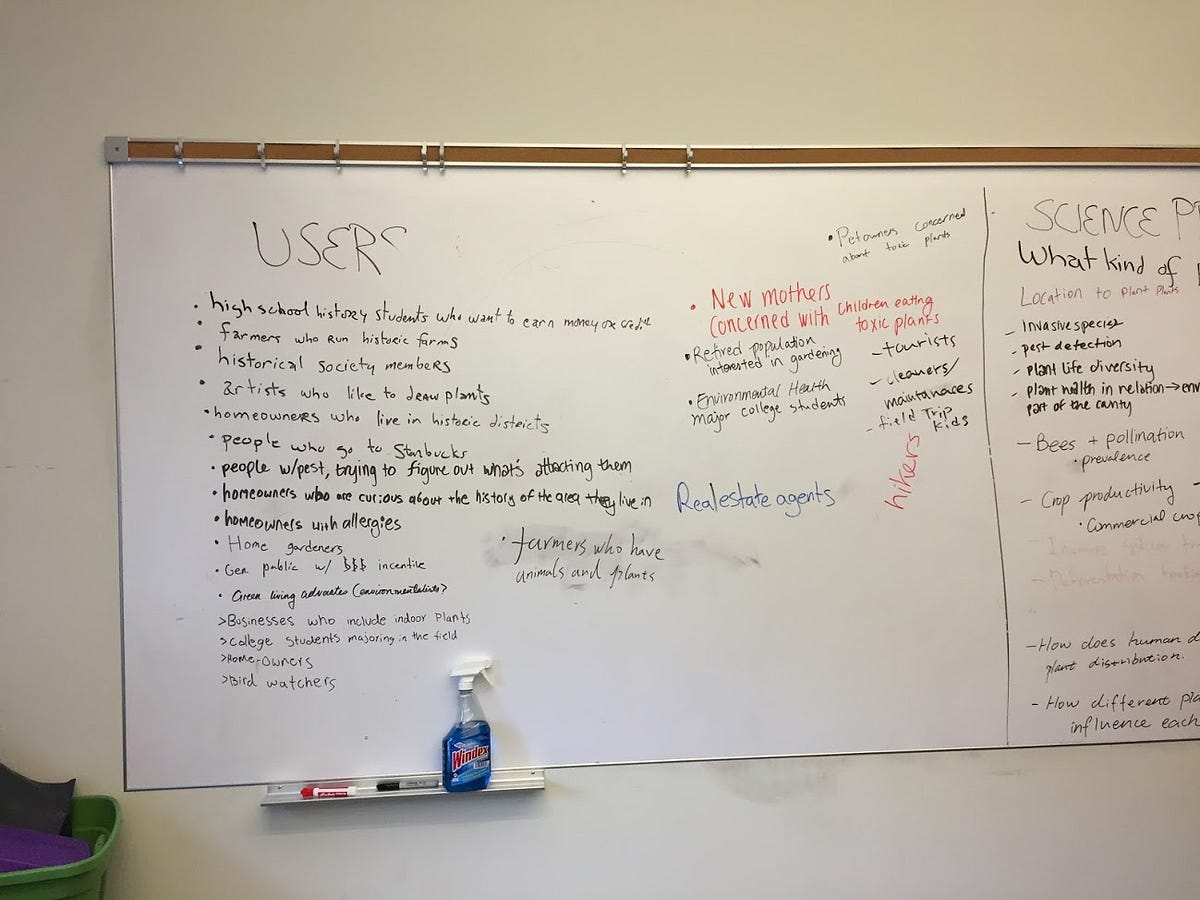 USERS
• high school history students who want to earn money or credit
• farmers who run historic farms
• historical society members
• artists who like to draw plants
• homeowners who live in historic districts
• people who go to Starbucks
• people w/pest, trying to figure out what's attracting them
• homeowners who are curious about the history of the area they live in
• homeowners with allergies
• Home gardeners
• Gen public w/ $$$ incentive
• Green living advocates (environmentalists?
>Businesses who include indoor Plants
>College students majoring in the field
>Home-Owners
>Bird watchers
• farmers who have
animals and plants
• Pet owners concerned
about toxic plants
• New mothers
concerned with children eating
toxic plants
• Retired population
interested in gardening
• Environmental Health
major college students
- tourists
- cleaners/
maintanaces
- field Trip
kids
hikers
Realestate agents
SCIENCE
What kind of
Location to plant plants
- Invasive species
- pest detection
- plant life diversity
- plant health in relation →
part of the
- Bees + pollination
• prevalence
- Crop productivity
• Commercial
- How does human
plant distribution.
- How different
influence each
Windex